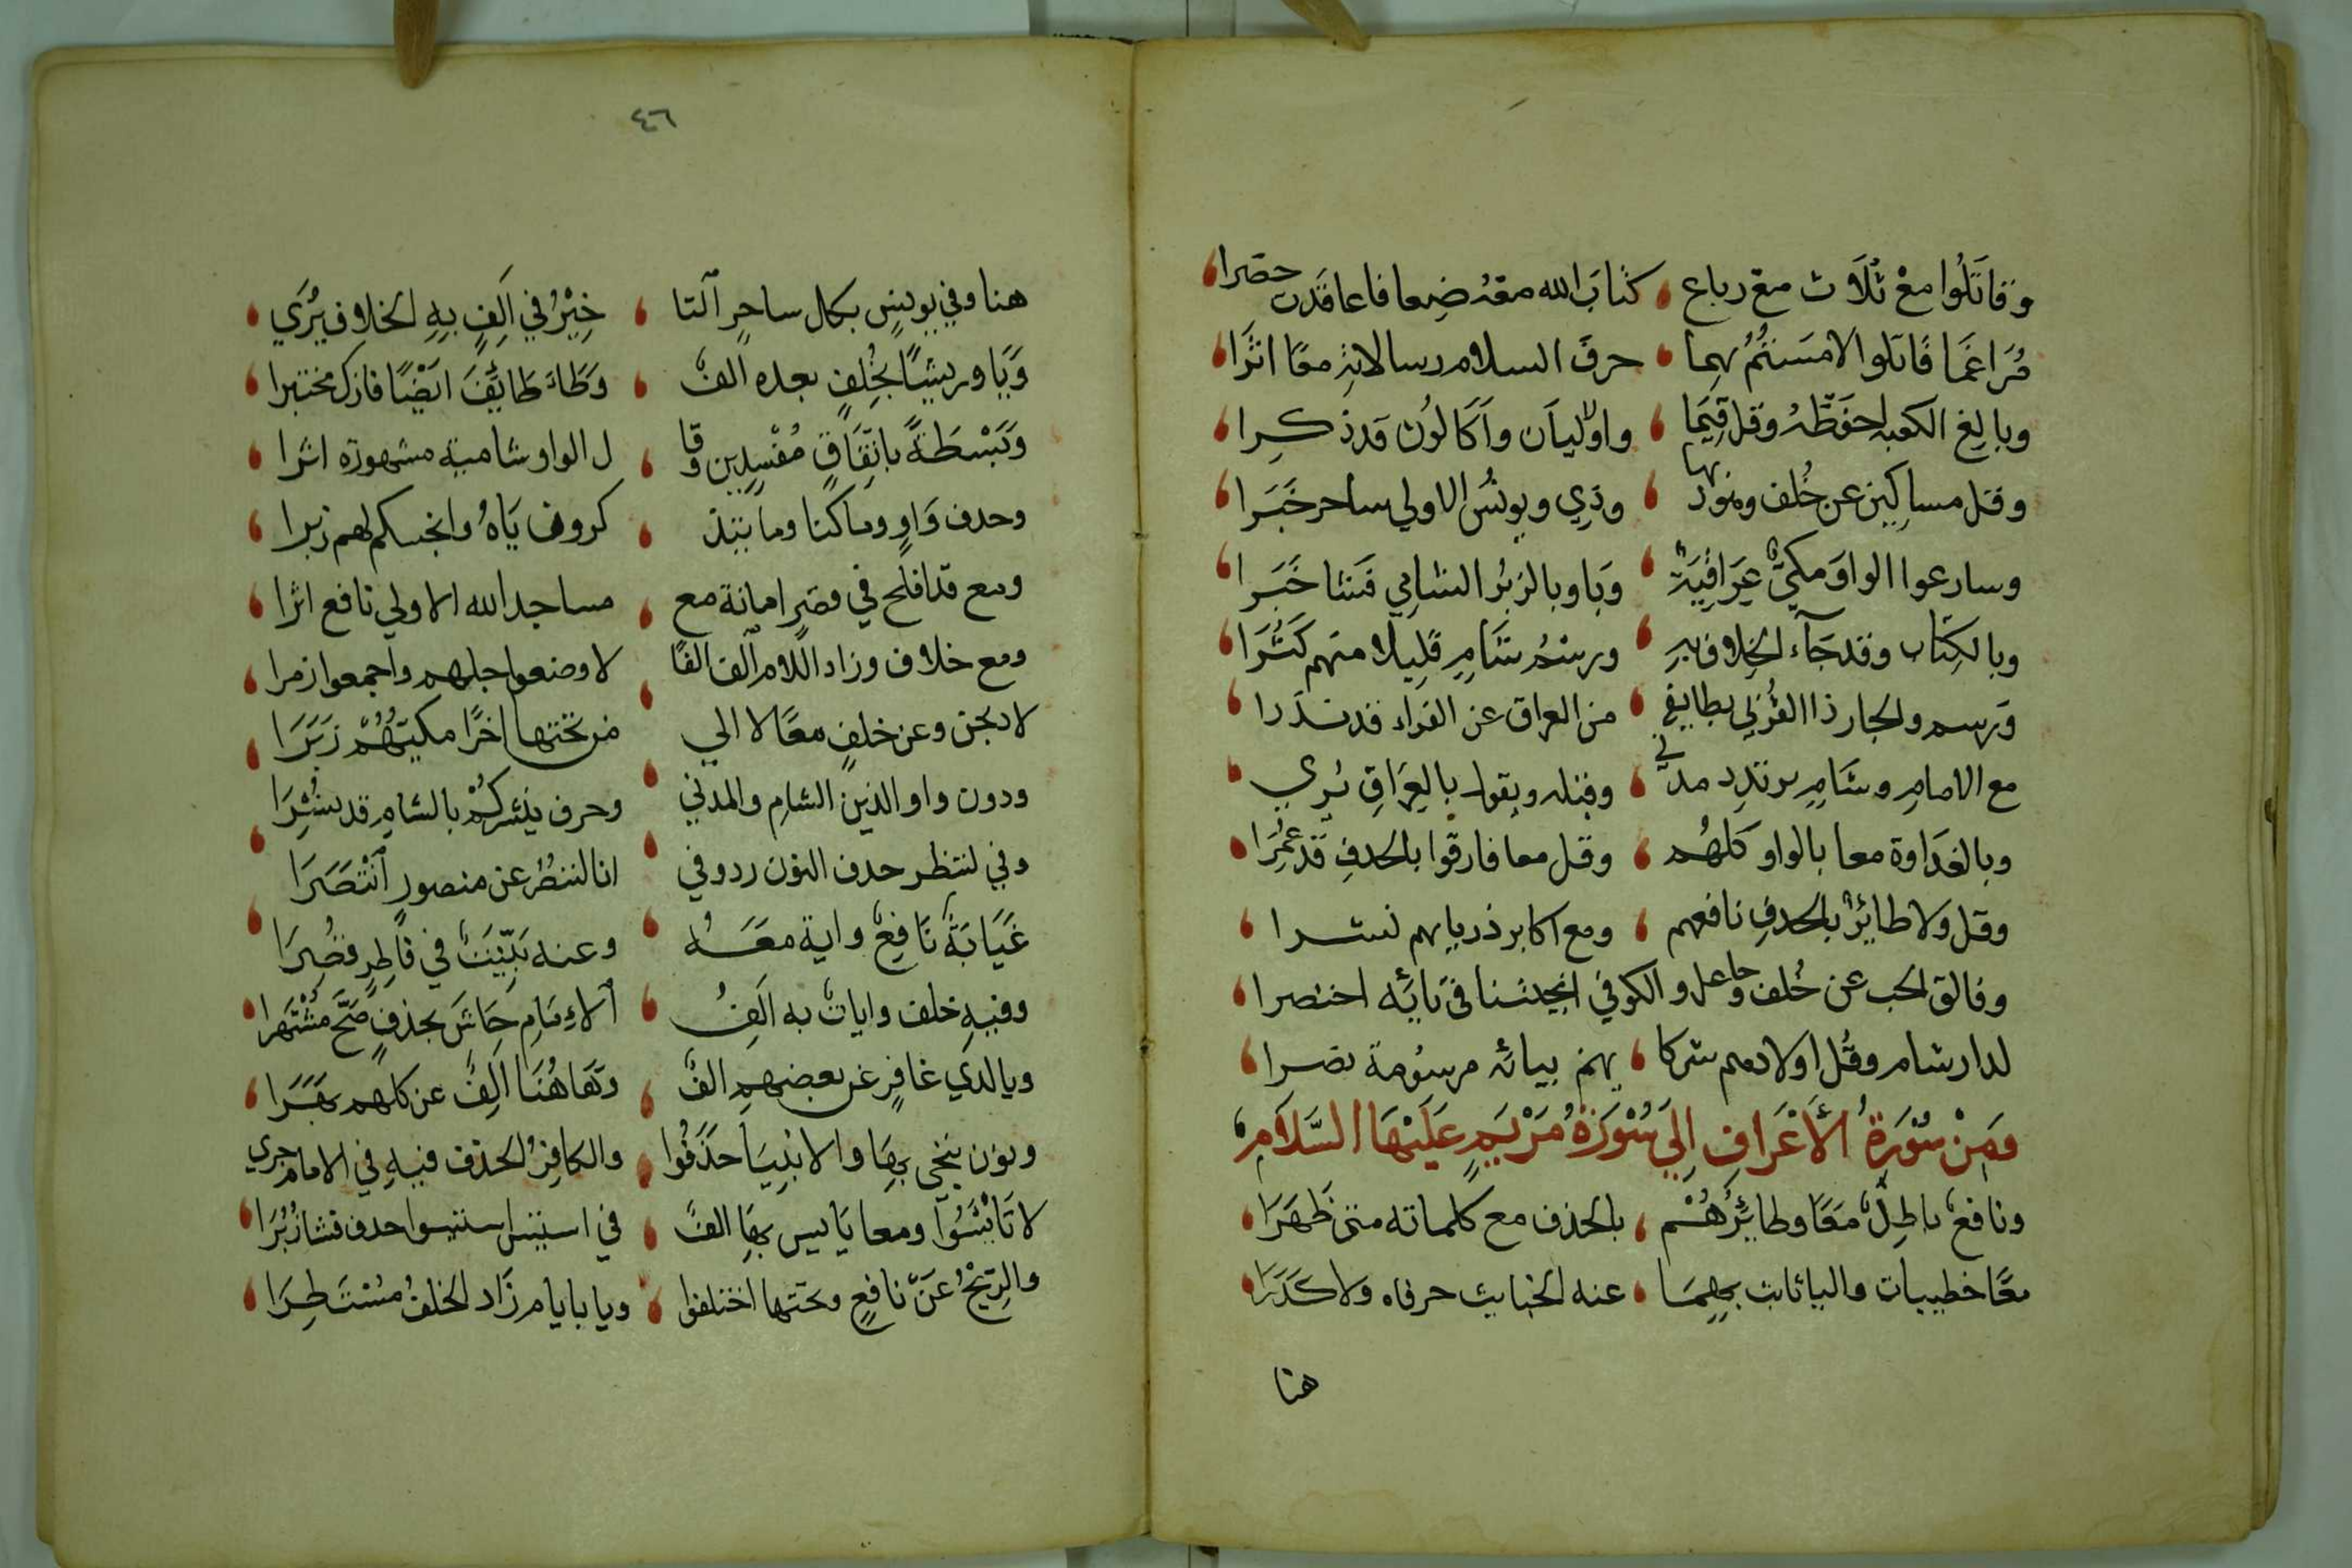 وقاتلوا معْ ثُلَاث مع رباع كتابَ الله معْه ضِعافا عاقَدت حصرا
مُرَاغَمًا قَاتلوا لامَسْتُمُ بهما حرفَ السلام رسالاتِهِ معًا اثَرَا
وبالِغ الكعبه احفَظْهُ وقل قِيَمَا واوْليَان واَكّالُون قد ذكِرا
وقل مساكِين عن خُلف وهود بها وذي ويونُسُ الاولي ساحر خَبَرا
وسارعوا الواوَ مكيٌّ عِرَاقِيَةٌ وبَا وبالزبُر الشامِي فشا خَبَرا
وبالكِتَاب وقد جَآء الخِلاف به ورسْمُ شَامٍ قَلِيلا منهم كَثُرَا
وَرسم والجار ذا القُرْبي بطايفةٍ من العراق عن الفراء قد ندَرا
مع الامامِ وشَامٍ يرتدِد مدني وقبله ويقول بالعِرَاقِ يُري
وبالغَدَاوة معا بالواو كلهُم وقل معا فارقوا بالحدفِ قد عُمِرَا
وقل ولا طائرٌ بالحدفِ نافعهم ومع اكابر ذرياتهم نشرا
وفالق الحب عن خُلف وجاعل والكوفي انجيتنا في تَائِه اختصرا
لدار شام وقُل اولادهم شركا يهم بيائه مرسُومة نصرا
وَمِنْ سُوْرَةِ الأَعْرَافِ إِلَى سُوْرَةُ مَرْيَمٍ عَلَيْهَا السَّلَامِ
ونافعٌ باطلٌ مَعًا وطائِرُهُمْ بالحذف مع كلماته متى ظَهَرَا
معًا خطيبات واليا ثابت بهِمَا عنه الخبايث حرفاه ولا كَدَرَا
هنا
٤٦
هنا وفي يونسٍ بكل ساحرٍ التا خِيْرُ في اَلِفٍ بِهِ الخلاف يُرَي
وَيَا وريشًا بخُلفٍ بعده الفٌ وَطَاءُ طايِفٌ ايْضًا فازك مختبرا
وَبَسْطَةً باتِّفَاقٍ مُفْسِدِين وقا ل الواو شامية مشهورة اثرا
وحدف وَاوٍ وما كنا وما يتذ كرون يَاهُ وانجيكم لهم زبرا
ومع قد افلح في قصرٍ امانة مع مساجد الله الاولي نافع اثرا
ومع خلاف وزاد اللام الف الفًا لا وضعوا جلهم واجمعوا زمرا
لا دبحن وعن خلفٍ معًا لا الي من تحتها اخرًا مكيّهُمْ زَبَرَا
ودون واو الذين الشامِ والمدني وحرف ينشركُمْ بالشامِ قد نشُِرَا
وفي لننظر حدف النون رد وفي انا لننظر عن منصورٍ اَنْتَصَرَا
غَيَابَةُ نَافِعٌ واية مَعَهُ وعنه بَيِّنَتٍ في فَاطِرٍ قصُِرَا
وفيهِ خلف واياتٌ به اَلِفُ الامامِ حَاشَ بحذفٍ صَحَّ مُشْتَهَرا
ويا لدي غافِرٍ عن بعضهمِ الفٌ وهَاهُنَا اَلِفٌ عن كلهم بَهَرَا
ونون نُنْجي بِهَا والانبِيَا حَذَفُوا والكافِرُ الحَذف فيهِ في الامام جري
لا تَايْئَسُوا ومعا يَاييس بِهَا الفٌ في استيئس استيئسوا حدف فشا زُبُرَا
والرِّيْحُ عَنْ نَافعٍ وتحتها اختلفوا ويا باياِم زَاد الخلفُ مُسْتَطِرَا